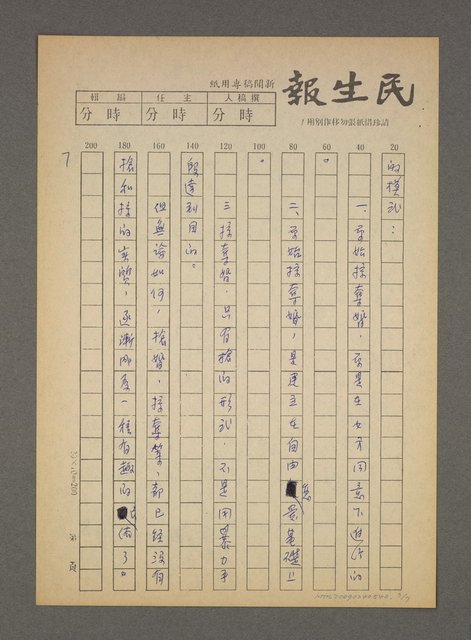 民生報
新聞稿專用紙
請珍惜紙張勿移作別用！
撰稿人 主任 編輯
時分 時分 時分
20 40 60 80 100 120 140 160 180 200
的模式：
一、原始掠奪婚，不是在女方同意下進行的
。
二、原始掠奪婚，是建立在自由意基礎上
。
三、掠奪婚，只有搶的形式，不是用暴力手
段達到目的。
但無論如何，搶婚、掠奪等，都已經沒有
搶和掠的實質，逐漸一種有趣的民俗了。
7
第 頁